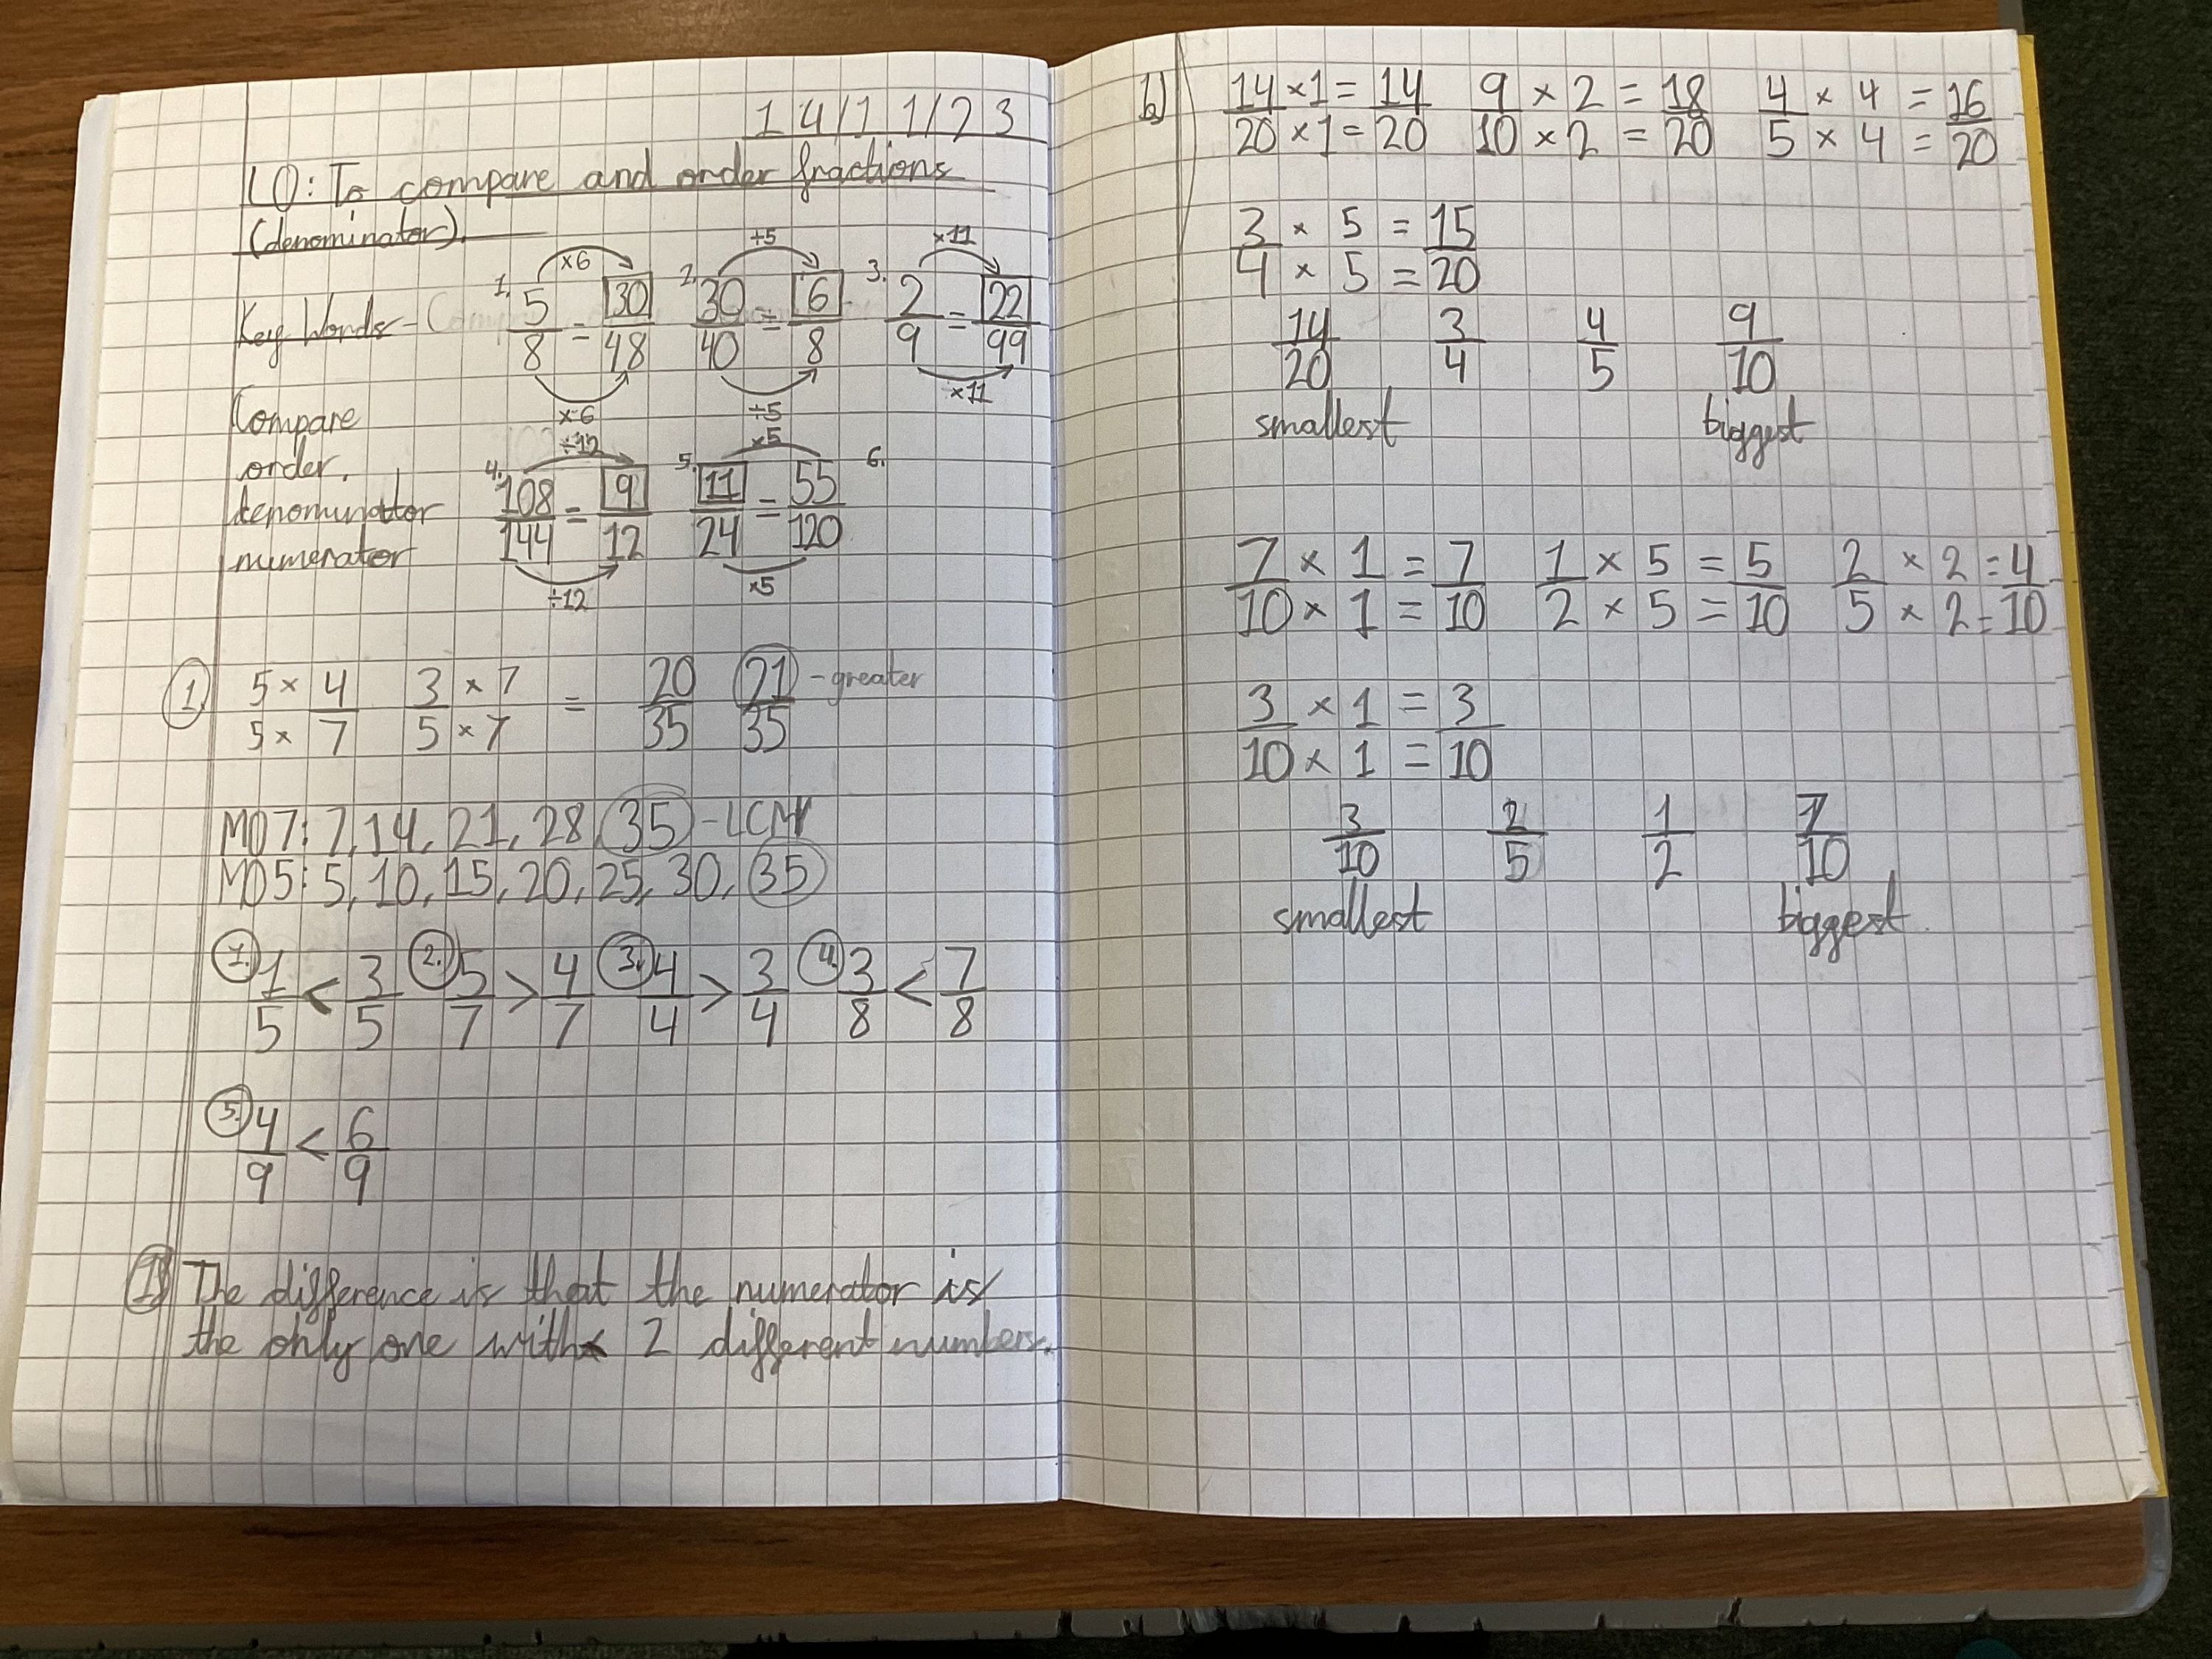 14/11/23
LO: To compare and order fractions
(denominator).
Key Words -
×6 ÷5 ×11
1. 5/8 = 30/48 2. 30/40 = 6/8 3. 2/9 = 22/99
×6 ÷5 ×11
Compare
order,
denominator
numerator
÷12 ×5
4. 108/144 = 9/12 5. 11/24 = 55/120 6.
÷12 ×5
1. 5 × 4 / 5 × 7 3 × 7 / 5 × 7 = 20/35 21/35 - greater
MO7: 7, 14, 21, 28, 35 - LCM
MO5: 5, 10, 15, 20, 25, 30, 35
1. 1/5 < 3/5 2. 5/7 > 4/7 3. 4/4 > 3/4 4. 3/8 < 7/8
5. 4/9 < 6/9
The difference is that the numerator is
the only one with 2 different numbers.
b) 14/20 × 1 = 14 / × 1 = 20 9/10 × 2 = 18 / × 2 = 20 4/5 × 4 = 16 / × 4 = 20
3/4 × 5 = 15 / × 5 = 20
14/20 3/4 4/5 9/10
smallest biggest
7/10 × 1 = 7 / × 1 = 10 1/2 × 5 = 5 / × 5 = 10 2/5 × 2 = 4 / × 2 = 10
3/10 × 1 = 3 / × 1 = 10
3/10 2/5 1/2 7/10
smallest biggest.